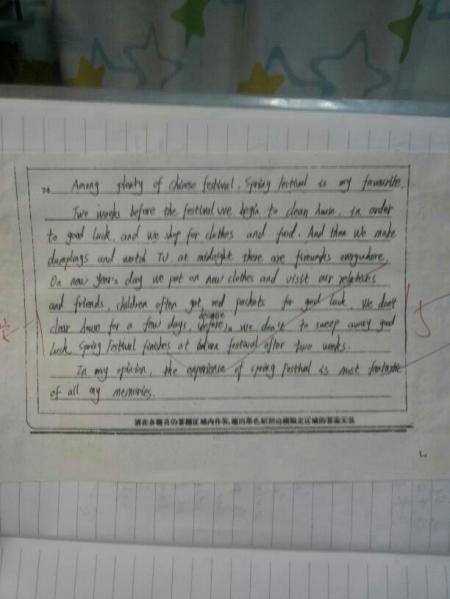 Among plenty of Chinese festival, Spring festival is my favourite.
Two weeks before the festival we begin to clean house, in order
to good luck, and we shop for clothes and food. And then we make
dumplings and watch TV at midnight there are fireworks everywhere.
On new year's day we put on new clothes and visit our relatives
and friends, children often get red packets for good luck. We don't
clear house for a few days, we don't to sweep away good
luck. Spring festival finishes at festival after two weeks.
In my opinion, the experience of spring festival is most fantastic
of all my memories.
请在各题目的答题区域内作答,超出黑色矩形边框限定区域的答案无效